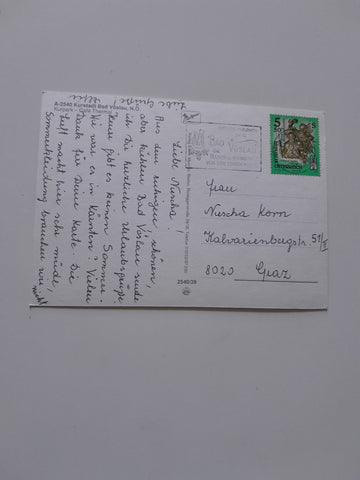 A-2540 Kurstadt Bad Vöslau, N.Ö.
Kurpark - Café Thermal
Liebe Nuscha!
Aus dem ruhigen, schönen,
aber kühlen Bad Vöslau sende
ich Dir herzliche Urlaubsgrüße.
Heuer gibt es keinen Sommer.
Wie war es in Kärnten? Vielen
Dank für Deine Karte. Die
Luft macht hier sehr müde,
Sommerkleidung brauchen wir
nicht!
Liebe Grüße!
2540/39
BAD VÖSLAU
5
S
ÖSTERREICH
Frau
Nuscha Korn
Kalvarienbergstr. 59/II
8020 Graz